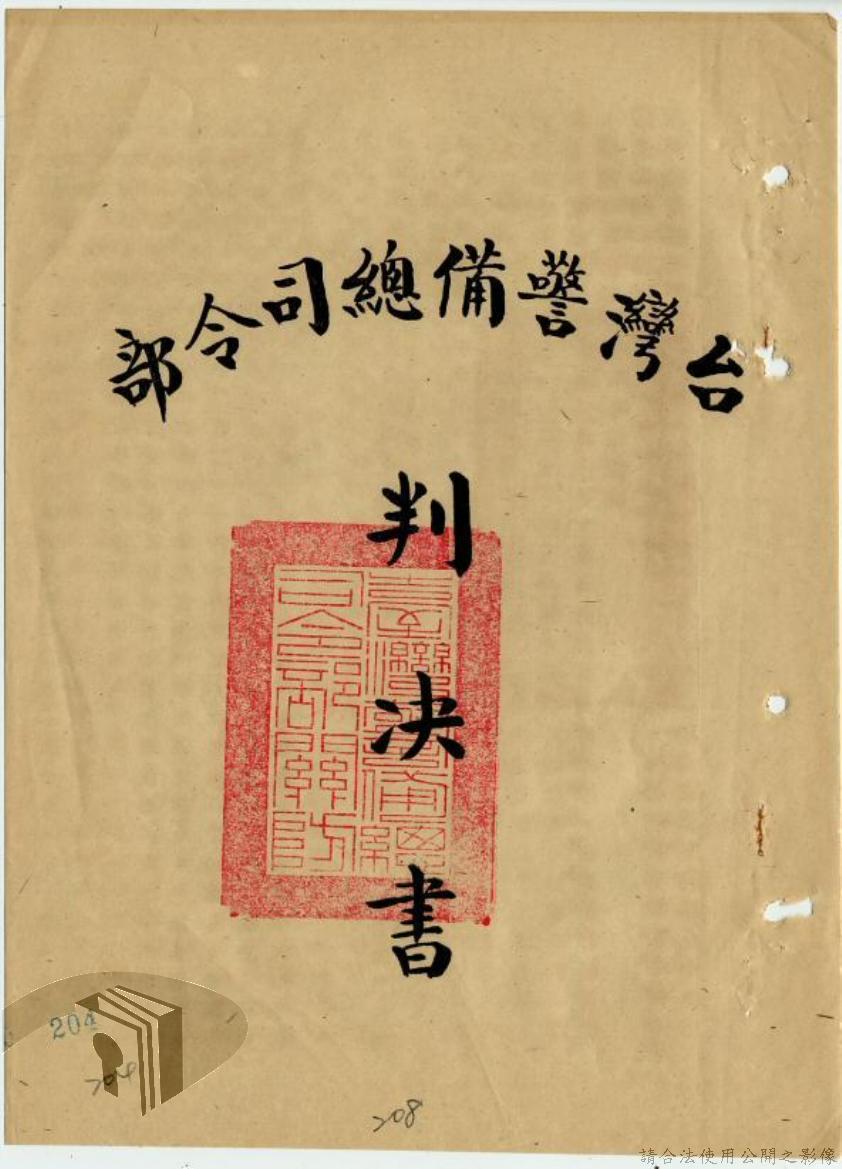 台灣警備總司令部
判決書
臺灣警備總
司令部關防
204
204
208
請合法使用公開之影像